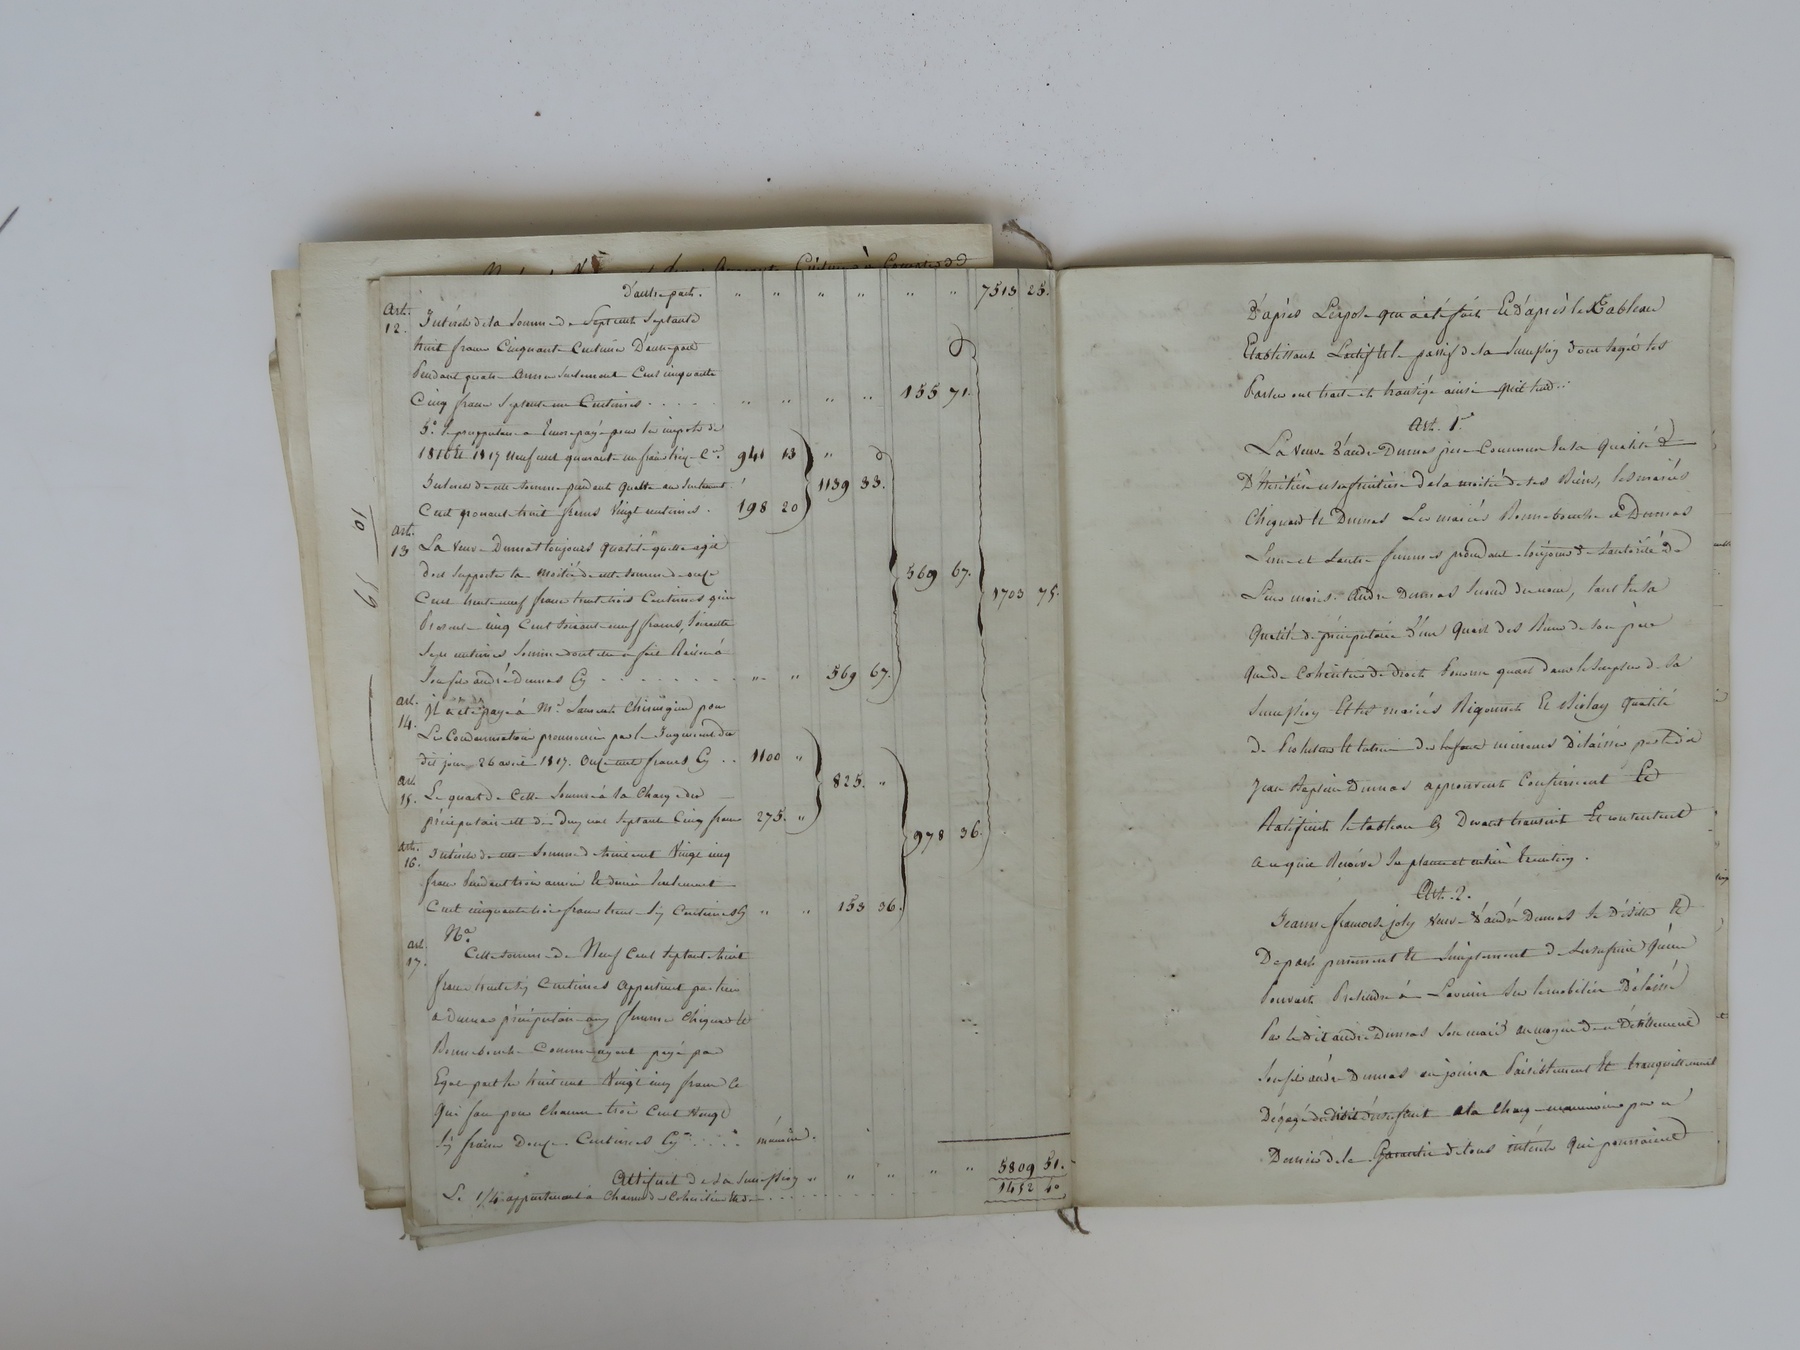 D'autre part. " " " " " " 7513 25.
Art. 12. Intérêts de la Somme de Sept cents Septante
huit francs Cinquante Centimes D'autre part
Pendant quatre Années seulement Cent cinquante
Cinq francs Septante un Centimes . . . . " " " " 155 71.
3.o le préciputaire a Encore payé pour les impots de
1816 Et 1817 neuf cent quarante un francs treize C.es 941 13 "
Intérêts de cette somme pendant quatre ans seulement 1139 33.
Cent nonante huit francs Vingt centimes . 198 20
Art. 13 La Veuve Dumas toujours qualité quelle agit
doit Supporter la moitié de cette somme de onze
Cent trente neuf francs trente trois Centimes qui
Présente cinq Cent soixante neuf francs, soixante
Sept centimes Somme dont elle a fait Raison à
Son fils andré Dumas Cy . . . . . . . " " 569 67. 569 67. 1703 75.
Art. 14. Il a été payé à Mr. Laurent Chirurgien pour
Les Condamnations prononcées par le Jugement du
dix jour 26 avril 1817. Onze cent francs Cy . . 1100 "
Art. 15. Le quart de Cette Somme à la Charge du 825. "
préciputaire est de Deux cent Septante Cinq francs 275. "
Art. 16. Intérêts de cette Somme de huit cent Vingt cinq 978 36.
francs Pendant trois années Et demie Seulement
Cent cinquante trois francs trente Six Centimes Cy " " 153 36.
Art. 17. Na.
Cette somme de Neuf Cent septante huit
francs trente six Centimes appartient par tiers
à Dumas préciputaire aux femmes Chiquard Et
Bonnebouche Comme ayant payé par
Egale part les huit cent Vingt cinq francs Ce
Qui fait pour Chacun trois Cent Vingt
Six francs Douze Centimes Cy . . . . mémoire.
Actif net de la Succession " " " " " 5809 51.
Le 1/4 appartenant à Chacun des Cohéritiers est de . . . . . . 1452 40
D'après L'exposé qui a été fait Et D'après le Tableau
Etablissant L'actif Et le passif de la Succession dont sagit les
Parties ont traité et transigé ainsi quil suit..
Art. 1.er
La Veuve d'andré Dumas père Commune En la Qualité
D'Héritière usufruitière de la moitié de ses Biens, les mariés
Chiquard Et Dumas Les mariés Bonnebouche et Dumas
L'une et L'autre femmes procédant toujours de L'autorité de
Leurs maris. André Dumas Second du nom, tant En sa
Qualité de préciputaire d'un Quart des Biens de son père
Que de Cohéritier de droit Pour un quart dans le Surplus de Sa
Succession Et les mariés Rigonnet Et Violay Qualité
De Protuteur Et tutrice des Enfans mineurs Délaissés par ledit
Jean Baptiste Dumas approuvent Confirment Et
Ratifient le tableau Cy Devant transcrit Et consentent
a ce quil Recoive Sa pleine et entière Exécution.
Art. 2.
Jeanne françoise joly veuve d'andré Dumas Se Désiste Et
Départ purement Et Simplement de Lusufruit Quelle
Pouvait Prétendre à L'avenir Sur le mobilier Délaissé
Par le dit andré Dumas Son mari au moyen de ce Désistement
Son fils andré Dumas en jouira Paisiblement Et tranquillement
Dégagé du dit usufruit a la Charge néanmoins par ce
Dernier de la Garantir de tous intérêts Qui pourraient
10
19